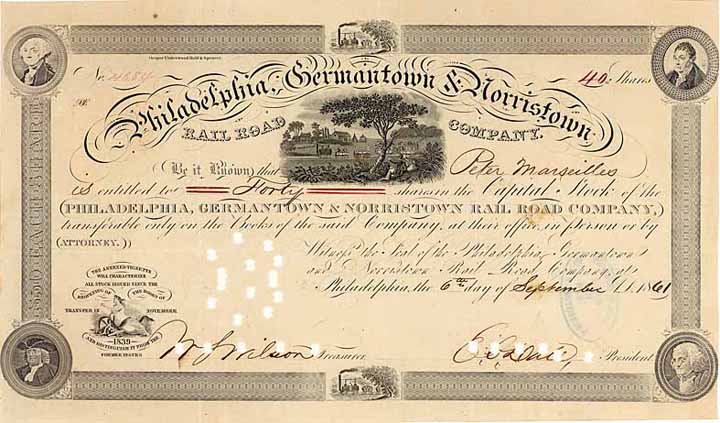 Draper Underwood Bald & Spencer.
No. 
40 Shares
Philadelphia, Germantown & Norristown
RAIL ROAD COMPANY.
Be it Known that Peter Marseilles
is entitled to Forty shares in the Capital Stock of the
(PHILADELPHIA, GERMANTOWN & NORRISTOWN RAIL ROAD COMPANY,)
transferable only on the Books of the said Company, at their office, in person or by
(ATTORNEY.))
Witness the Seal of the Philadelphia, Germantown
and Norristown Rail Road Company, at
Philadelphia, the 6th day of September 1861
THE ANNEXED VIGNETTE
WILL CHARACTERISE
ALL STOCK ISSUED SINCE THE
REOPENING OF THE BOOKS OF
TRANSFER IN NOVEMBER
1839
AND DISTINGUISH IT FROM THE
FORMER ISSUES
W S Wilson Treasurer.
President.
$50 EACH SHARE